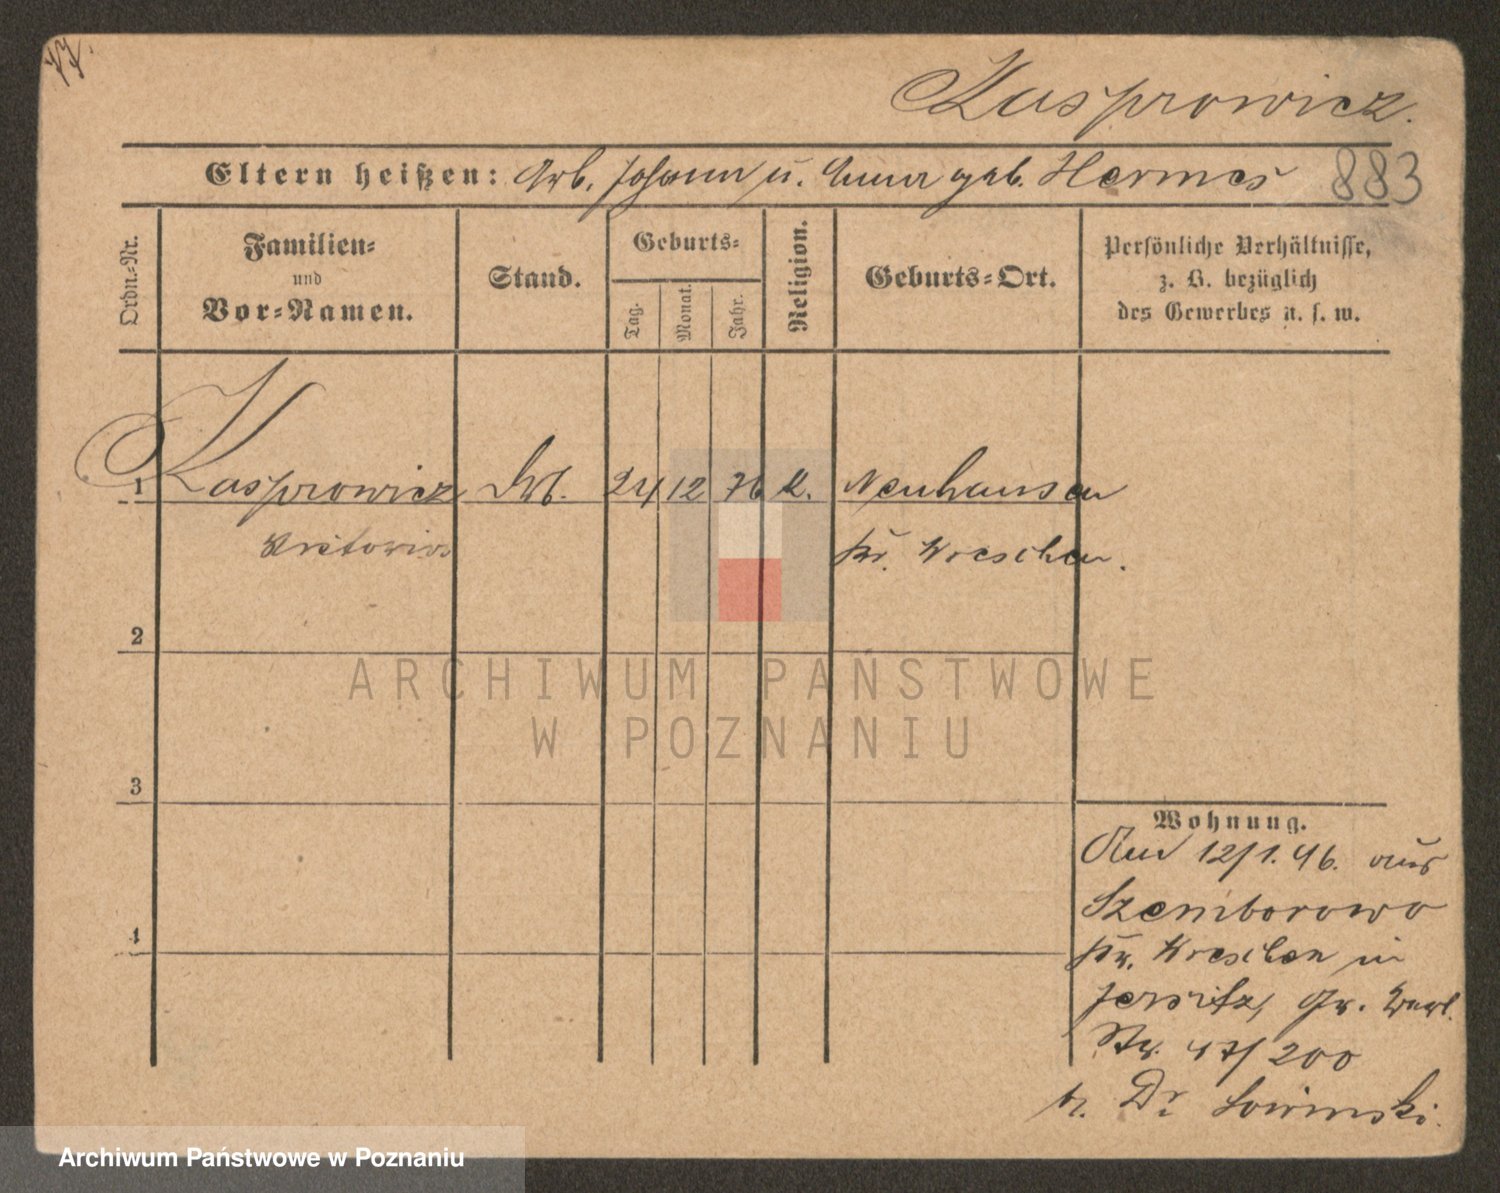 Kasprowicz.
Eltern heißen: Arb. Johann u. Anna geb. Hermes
883
Ordn.=Nr.
Familien=
und
Vor=Namen.
Stand.
Geburts=
Tag.
Monat.
Jahr.
Religion.
Geburts=Ort.
Persönliche Verhältnisse,
z. B. bezüglich
des Gewerbes u. s. w.
1 Kasprowicz Arb. 24 12 76 k. Neuhausen
Victoria Kr. Wreschen.
2
3
4
Wohnung.
12/1. 96. aus
Szemborowo
Kr. Wreschen in
Jersitz, Gr. Berl.
Str. 47/200
b. Dr
ARCHIWUM PAŃSTWOWE
W POZNANIU
Archiwum Państwowe w Poznaniu